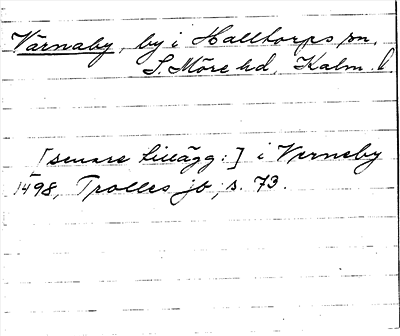 Värnaby, by i Halltorps sn,
S. Möre hd, Kalm. l.
[senare tillägg:] i Verneby
1498, Trolles jb, s. 73.